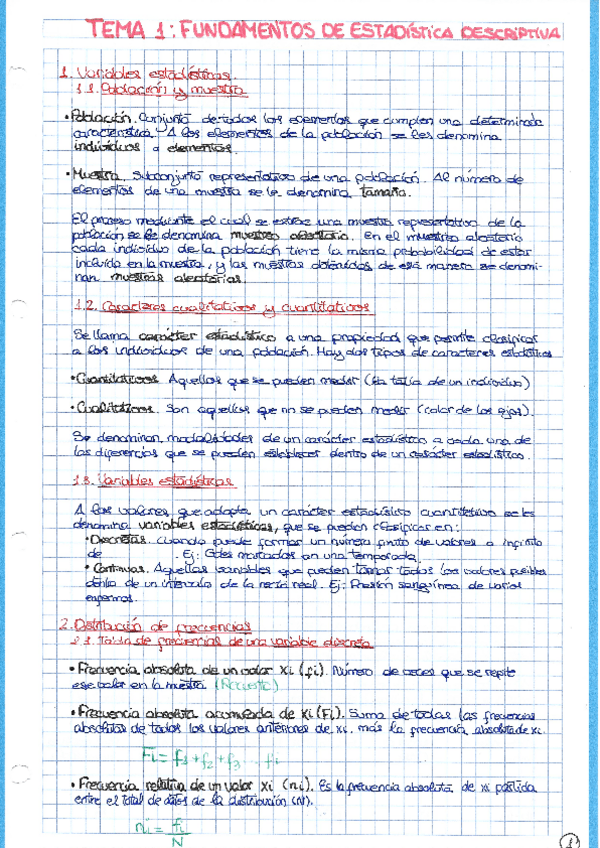 TEMA 1: FUNDAMENTOS DE ESTADÍSTICA DESCRIPTIVA
1. Variables estadísticas.
1.1. Población y muestra
• Población. Conjunto de todos los elementos que cumplen una determinada
característica. A los elementos de la población se les denomina
individuos o elementos.
• Muestra. Subconjunto representativo de una población. Al número de
elementos de una muestra se le denomina tamaño.
El proceso mediante el cual se extrae una muestra representativa de la
población se le denomina muestreo aleatorio. En el muestreo aleatorio
cada individuo de la población tiene la misma probabilidad de estar
incluido en la muestra, y las muestras obtenidas de esta manera se denomi-
nan muestras aleatorias.
1.2. Caracteres cualitativos y cuantitativos
Se llama carácter estadístico a una propiedad que permite clasificar
a los individuos de una población. Hay dos tipos de caracteres estadísticos
• Cuantitativos. Aquellos que se pueden medir (la talla de un individuo)
• Cualitativos. Son aquellos que no se pueden medir (color de los ojos).
Se denominan modalidades de un carácter estadístico a cada una de
las diferencias que se pueden establecer dentro de un carácter estadístico.
1.3. Variables estadísticas
A los valores que adopta un carácter estadístico cuantitativo se les
denomina variables estadísticas, que se pueden clasificar en:
• Discretas. Cuando puede tomar un número finito de valores o infinito
de . Ej: Goles marcados en una temporada.
• Continuas. Aquellas variables que pueden tomar todos los valores posibles
dentro de un intervalo de la recta real. Ej: Presión sanguínea de varios
enfermos.
2. Distribución de frecuencias
2.1. Tabla de frecuencias de una variable discreta
• Frecuencia absoluta de un valor xi (fi). Número de veces que se repite
ese valor en la muestra (Recuento)
• Frecuencia absoluta acumulada de xi (Fi). Suma de todas las frecuencias
absolutas de todos los valores anteriores de xi, más la frecuencia absoluta de xi.
Fi = f1 + f2 + f3 ... fi
• Frecuencia relativa de un valor xi (ni). Es la frecuencia absoluta de xi partida
entre el total de datos de la distribución (N).
ni = fi
N
1